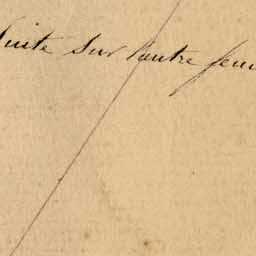 Suite Sur l'autre feui